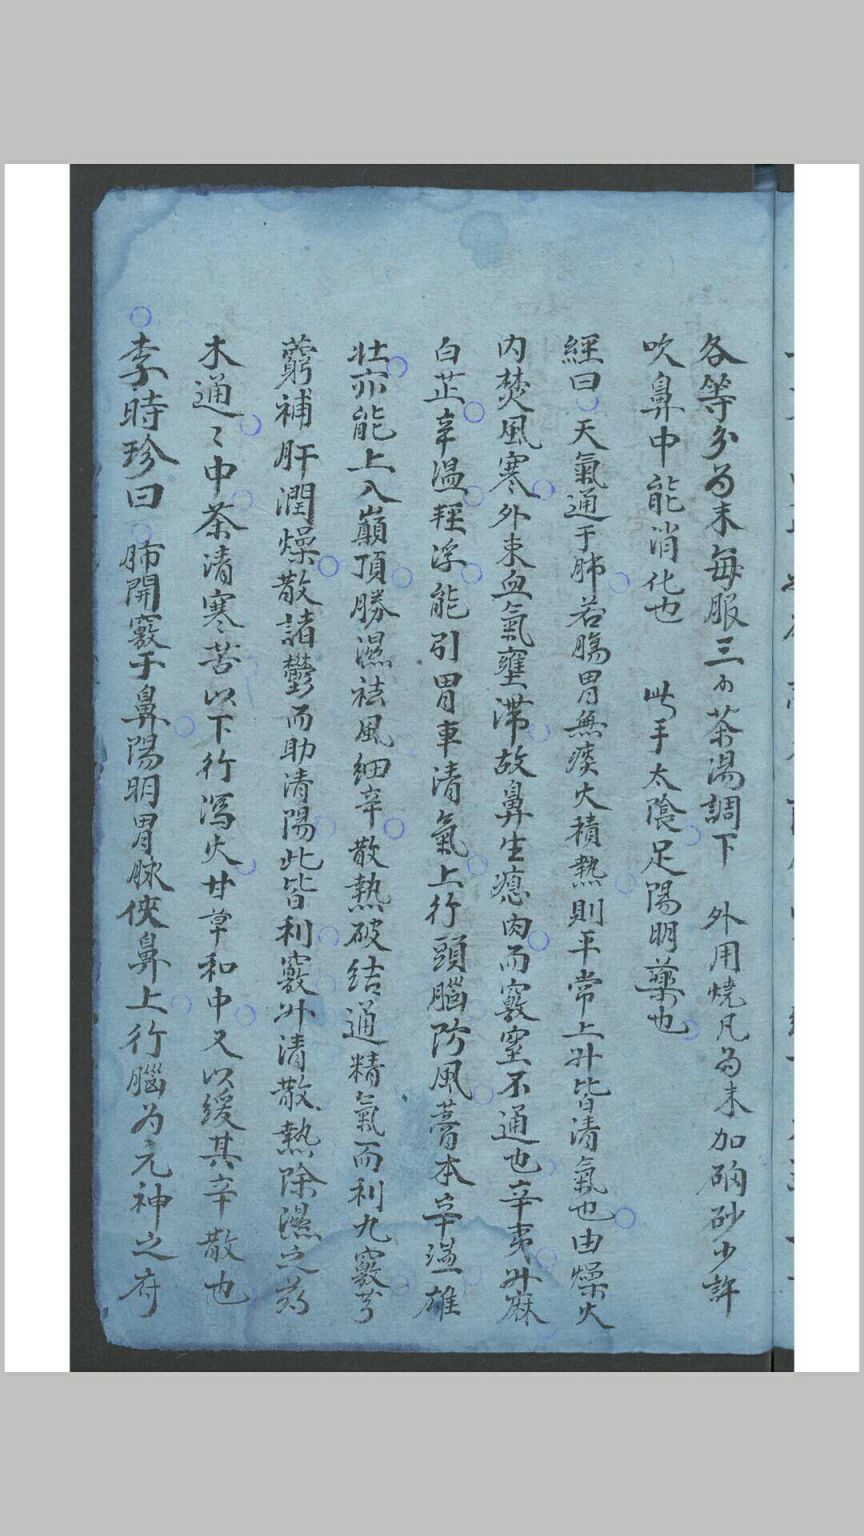 各等分為末每服三小茶湯調下 外用燒凡為末加硇砂少許
吹鼻中能消化也 此手太陰足陽明藥也
經曰天氣通于肺若腸胃無痰火積熱則平常上升皆清氣也由燥火
內焚風寒外束血氣壅滯故鼻生瘜肉而竅窒不通也辛夷升麻
白芷辛溫輕浮能引胃中清氣上行頭腦防風藁本辛溫雄
壯亦能上入巔頂勝濕祛風細辛散熱破結通精氣而利九竅芎
藭補肝潤燥散諸鬱而助清陽此皆利竅升清散熱除濕之药
木通〻中茶清寒苦以下行瀉火甘草和中又以緩其辛散也
李時珍曰 肺開竅于鼻陽明胃脉俠鼻上行腦为元神之府